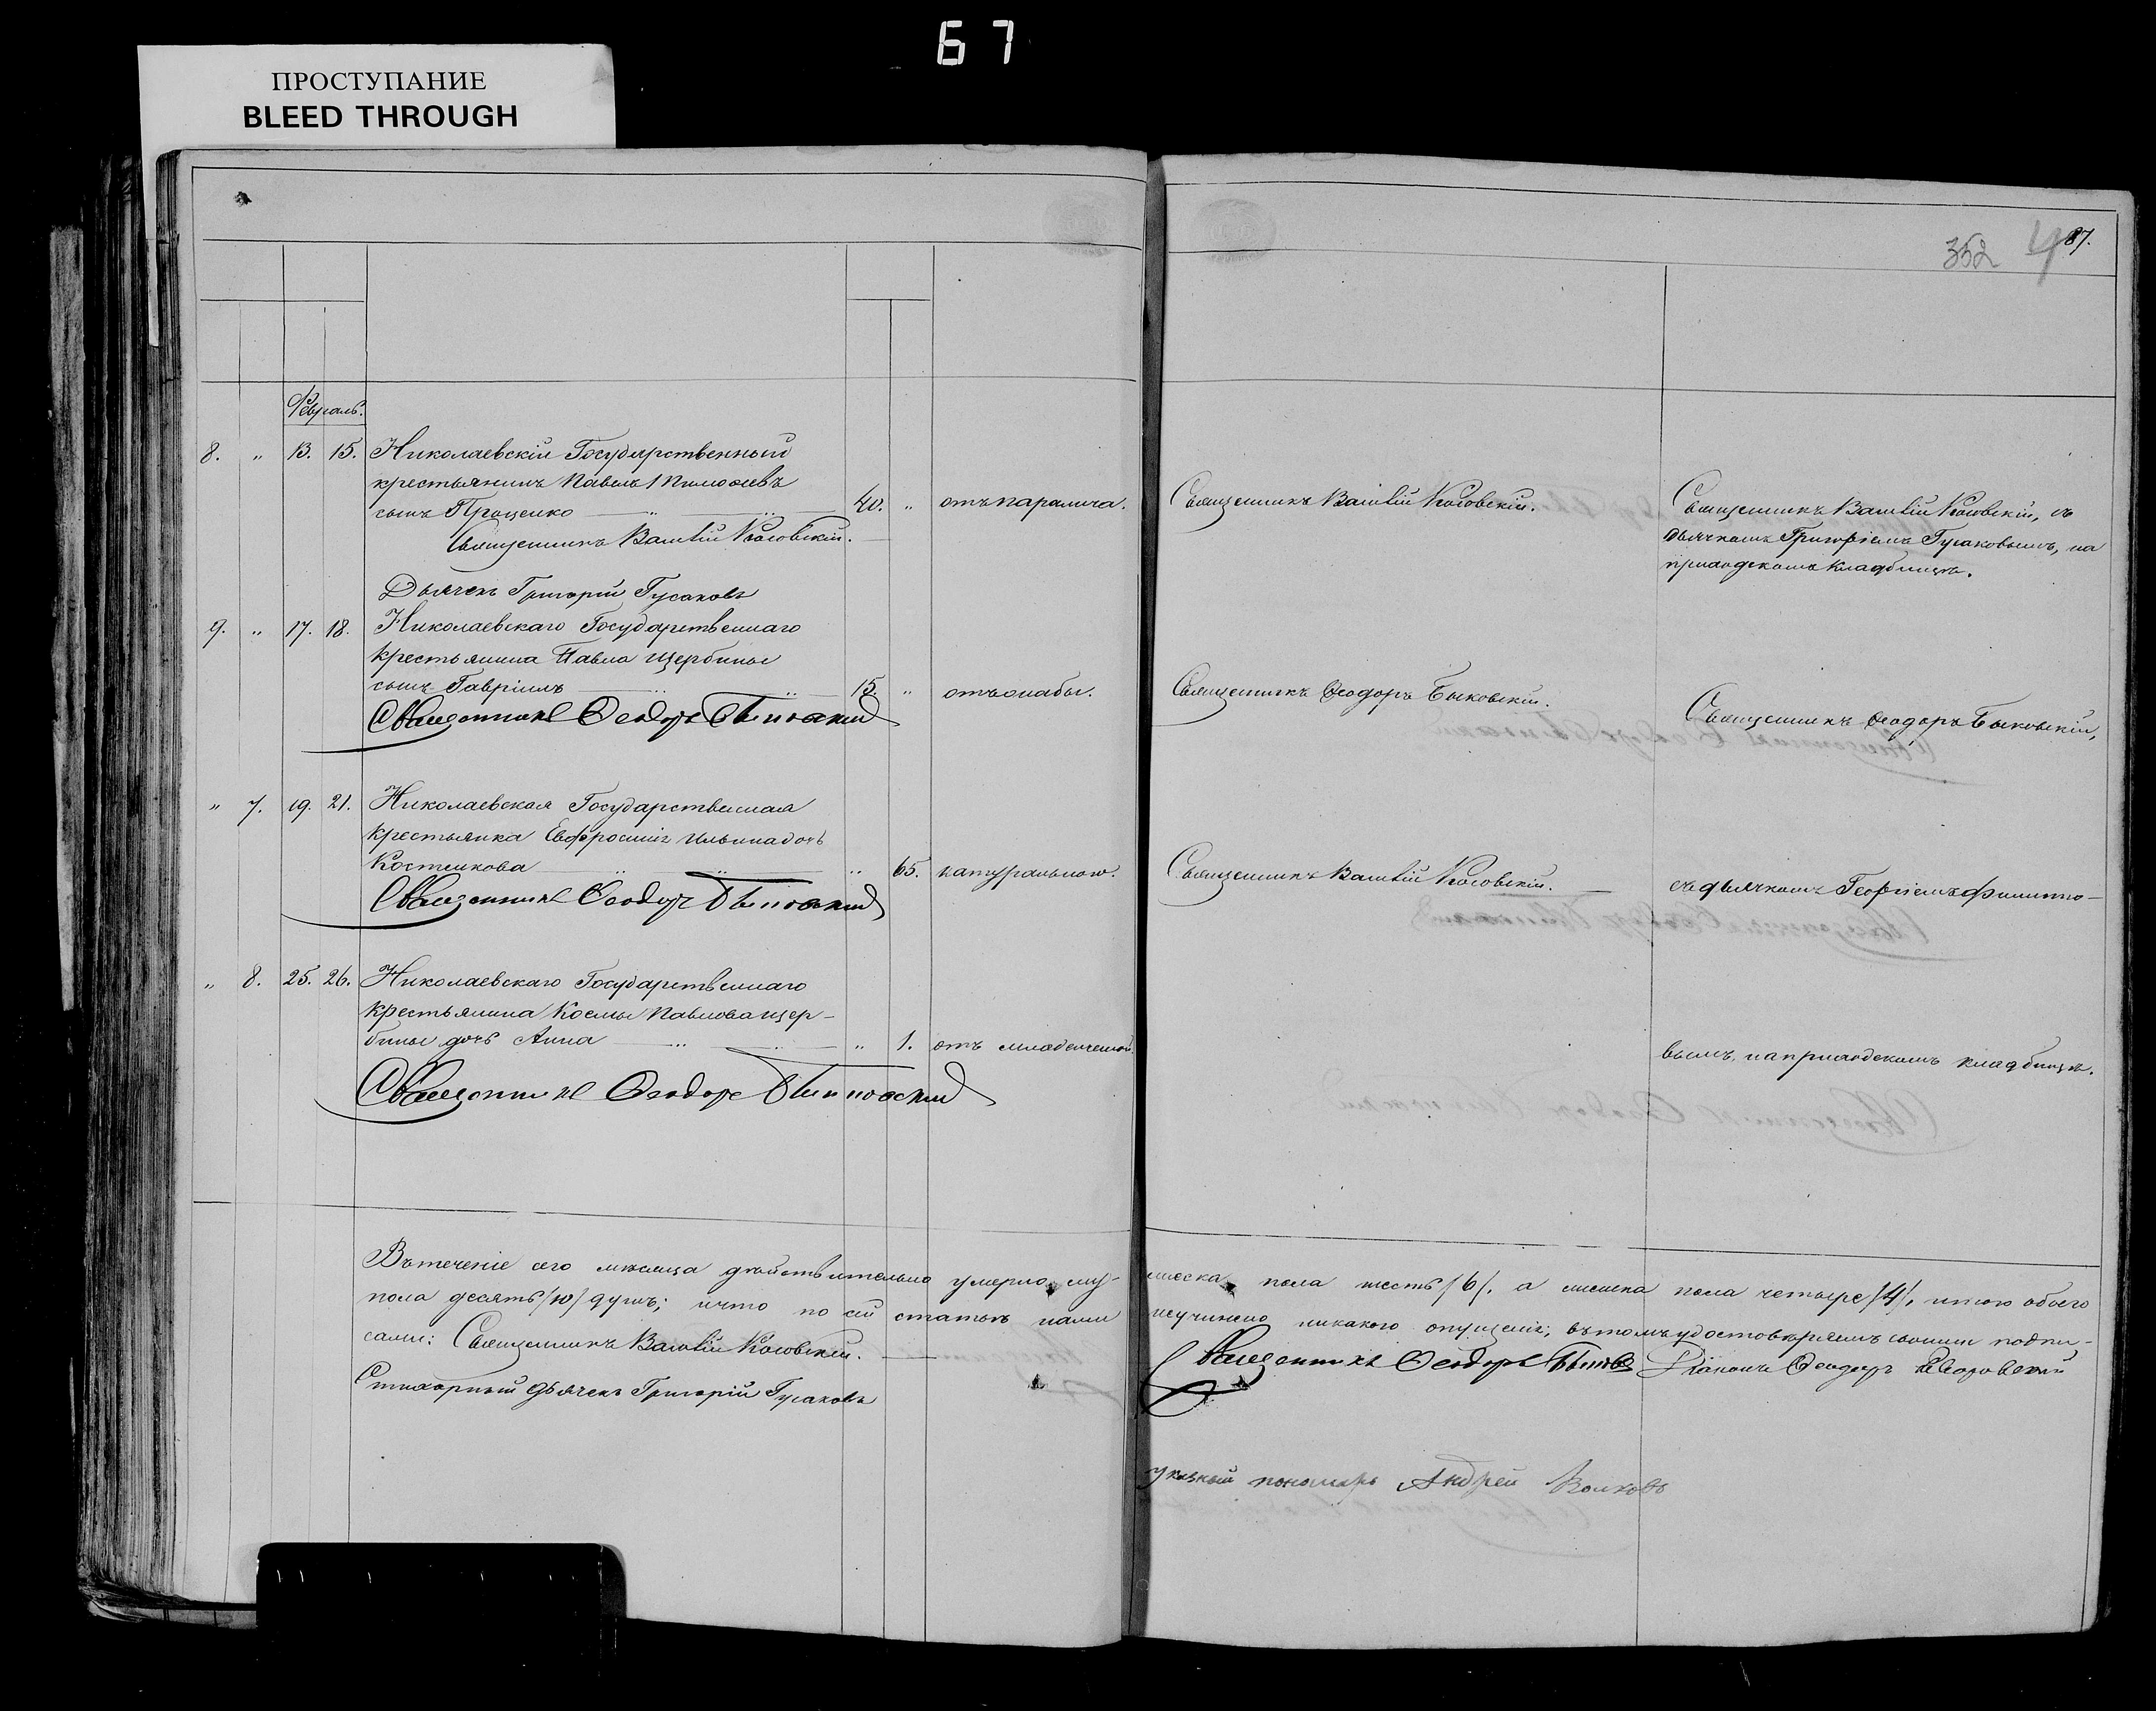 67
ПРОСТУПАНИЕ
BLEED THROUGH
352 4 87.
Февраль.
8. " 13. 15. Николаевскій Государственный
крестьянинъ Павелъ Тимофеевъ
сынъ Проценко 40. " отъ паралича. Священникъ Василій Косовскій. Священникъ Василій Косовскій, съ
Священникъ Василій Косовскій. дьячкомъ Григоріемъ Гусаковымъ, на
приходскомъ кладбищѣ.
Дьячекъ Григорій Гусаковъ
9. " 17. 18. Николаевскаго Государственнаго
крестьянина Павла Щербины
сынъ Гавріилъ 15. " отъ слабы. Священникъ Ѳеодоръ Быковскій. Священникъ Ѳеодоръ Быковскій,
Священникъ Ѳеодоръ Быковский
" 7. 19. 21. Николаевская Государственная
крестьянка Евфросинія Ильина дочь
Костенкова " 65. натуральною. Священникъ Василій Косовскій. съ дьячкомъ Георгіемъ Филиппо-
Священникъ Ѳеодоръ Быковский
" 8. 25. 26. Николаевскаго Государственнаго
крестьянина Космы Павлова Щер-
бины дочь Анна " 1. отъ младенческой. вымъ, на приходскомъ кладбищѣ.
Священникъ Ѳеодоръ Быковский
Въ теченіе сего мѣсяца дѣйствительно умерло мужеска пола шесть /6/, а женска пола четыре /4/, итого обоего
пола десять /10/ душъ; и что по сей статьѣ нами неучинено никакого опущенія; въ томъ удостовѣряемъ своими подпи-
сами: Священникъ Василій Косовскій. Священникъ Ѳеодоръ Діаконъ Ѳеодоръ
Стихарный дьячекъ Григорій Гусаковъ
указный пономарь Андрей Волковъ